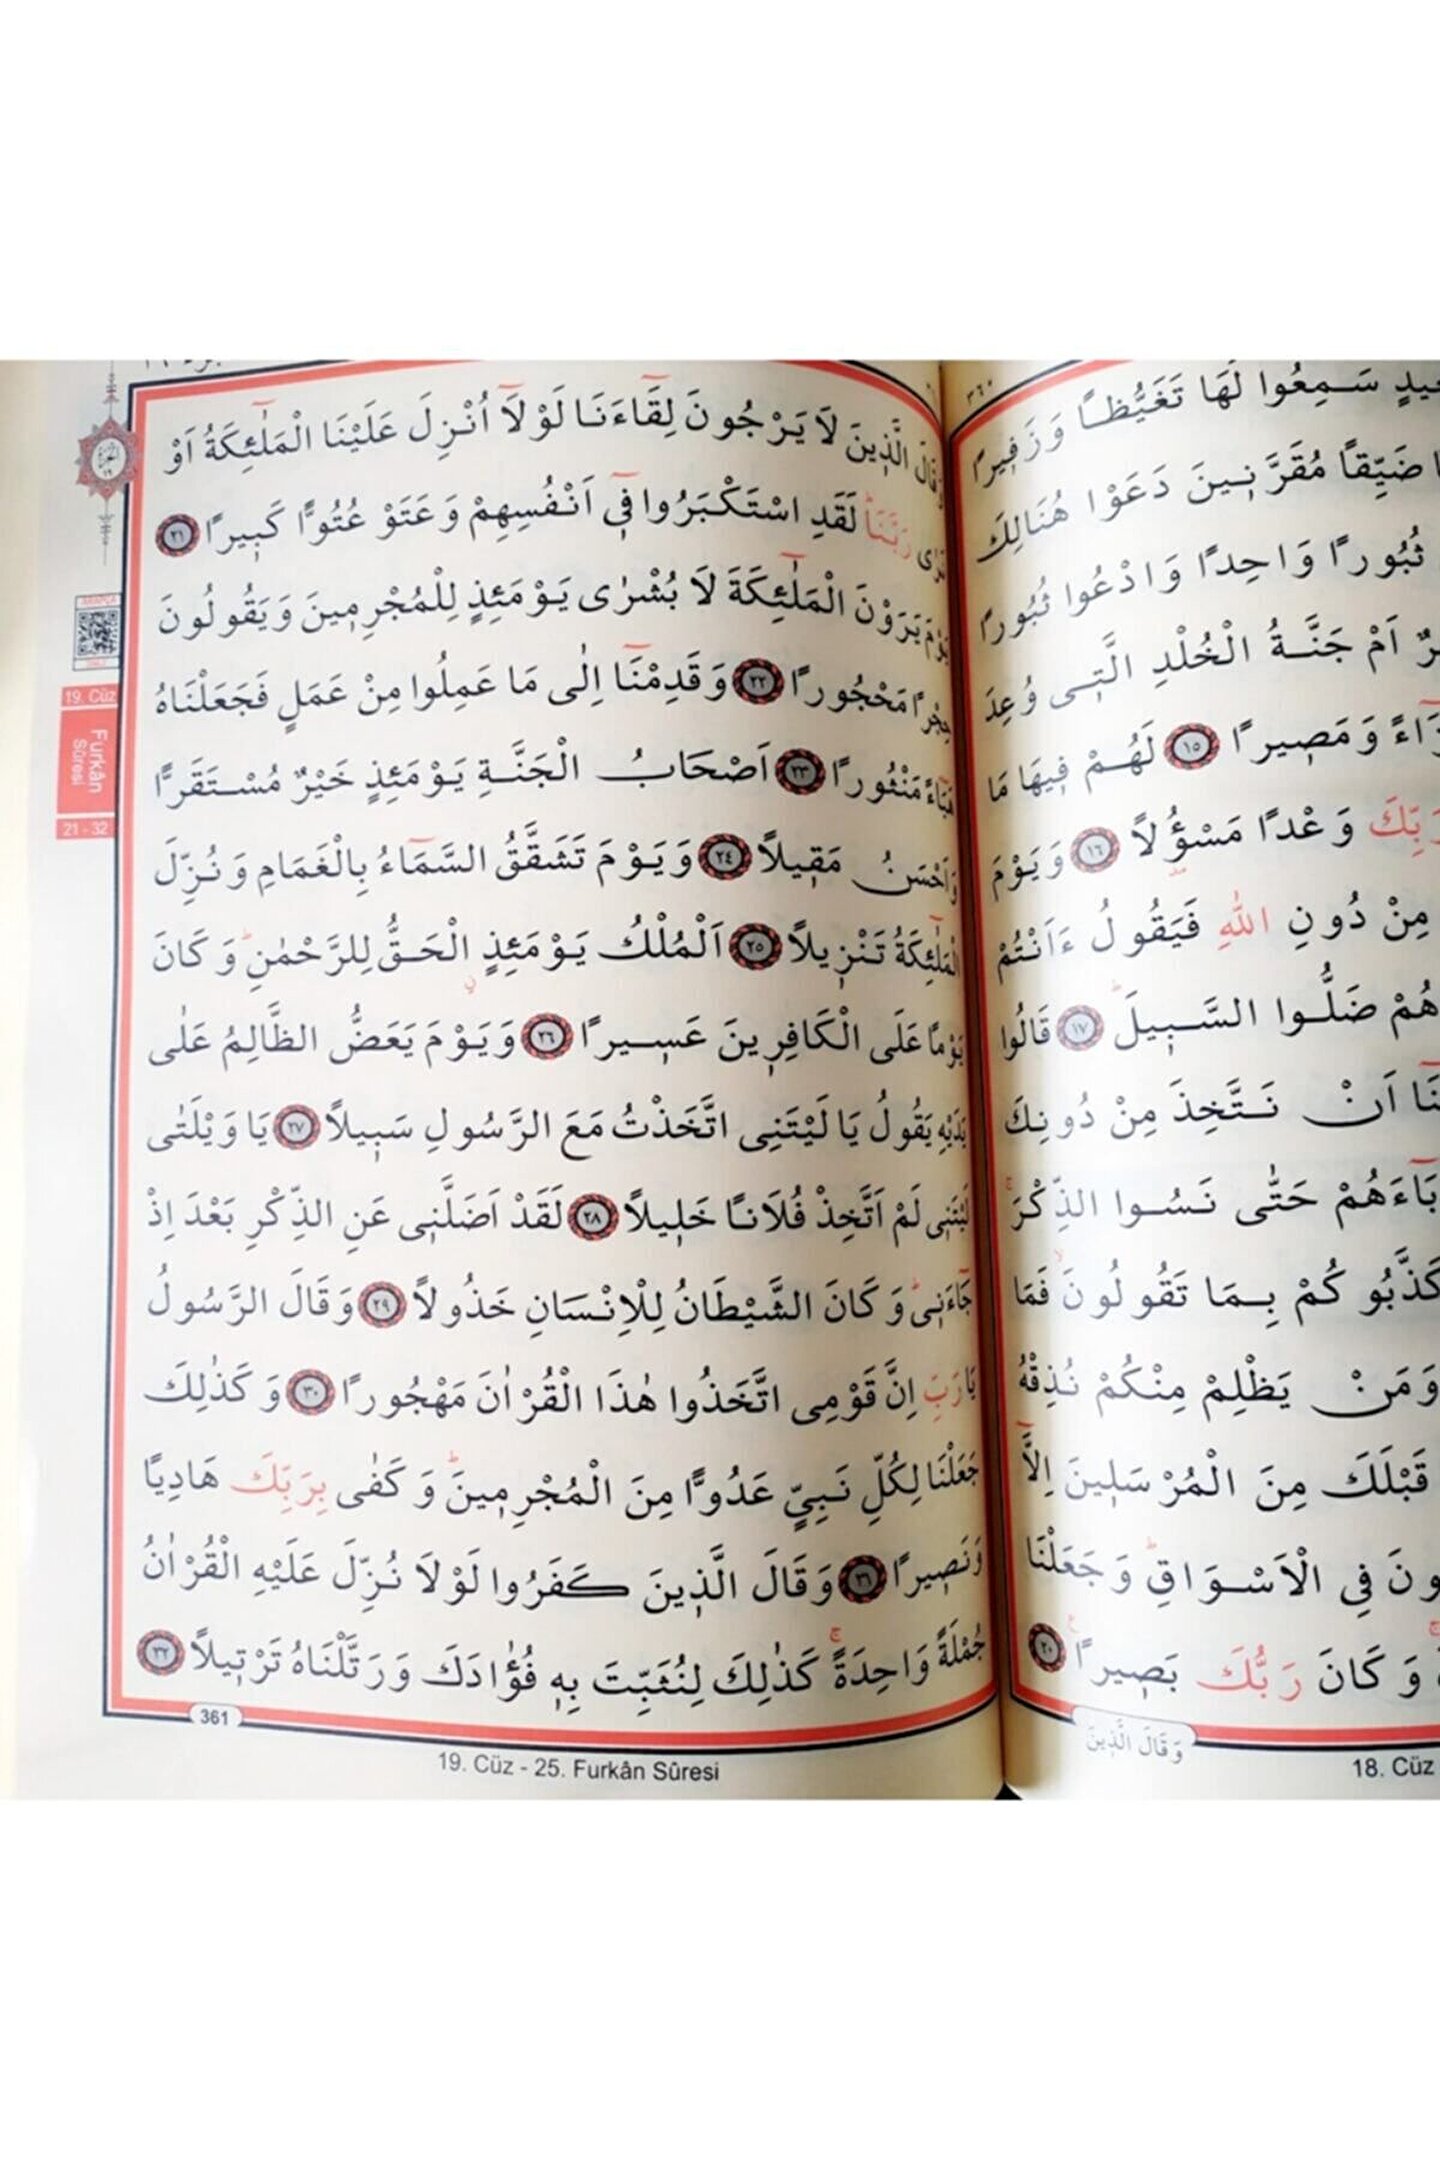 ٣٦٠
سَمِعُوا لَهَا تَغَيُّظًا وَزَفِيرًا
ضَيِّقًا مُقَرَّنِينَ دَعَوْا هُنَالِكَ
ثُبُورًا وَاحِدًا وَادْعُوا ثُبُورًا
اَمْ جَنَّةُ الْخُلْدِ الَّتِى وُعِدَ
وَمَصِيرًا ﴿١٥﴾ لَهُمْ فِيهَا مَا
رَبِّكَ وَعْدًا مَسْؤُلًا ﴿١٦﴾ وَيَوْمَ
مِنْ دُونِ اللّٰهِ فَيَقُولُ ءَاَنْتُمْ
هُمْ ضَلُّوا السَّبِيلَ ﴿١٧﴾ قَالُوا
اَنْ نَتَّخِذَ مِنْ دُونِكَ
حَتّٰى نَسُوا الذِّكْرَ
كَذَّبُوكُمْ بِمَا تَقُولُونَ فَمَا
وَمَنْ يَظْلِمْ مِنْكُمْ نُذِقْهُ
قَبْلَكَ مِنَ الْمُرْسَلِينَ اِلَّٓا
فِى الْاَسْوَاقِ وَجَعَلْنَا
وَكَانَ رَبُّكَ بَصِيرًا ﴿٢٠﴾
وَقَالَ الَّذِينَ
18. Cüz
وَقَالَ الَّذِينَ لَا يَرْجُونَ لِقَٓاءَنَا لَوْلَٓا اُنْزِلَ عَلَيْنَا الْمَلٰٓئِكَةُ اَوْ
نَرٰى رَبَّنَا لَقَدِ اسْتَكْبَرُوا فِٓى اَنْفُسِهِمْ وَعَتَوْ عُتُوًّا كَبِيرًا ﴿٢١﴾
يَوْمَ يَرَوْنَ الْمَلٰٓئِكَةَ لَا بُشْرٰى يَوْمَئِذٍ لِلْمُجْرِمِينَ وَيَقُولُونَ
حِجْرًا مَحْجُورًا ﴿٢٢﴾ وَقَدِمْنَٓا اِلٰى مَا عَمِلُوا مِنْ عَمَلٍ فَجَعَلْنَاهُ
هَبَٓاءً مَنْثُورًا ﴿٢٣﴾ اَصْحَابُ الْجَنَّةِ يَوْمَئِذٍ خَيْرٌ مُسْتَقَرًّا
وَاَحْسَنُ مَقِيلًا ﴿٢٤﴾ وَيَوْمَ تَشَقَّقُ السَّمَٓاءُ بِالْغَمَامِ وَنُزِّلَ
الْمَلٰٓئِكَةُ تَنْزِيلًا ﴿٢٥﴾ اَلْمُلْكُ يَوْمَئِذٍ الْحَقُّ لِلرَّحْمٰنِ وَكَانَ
يَوْمًا عَلَى الْكَافِرِينَ عَسِيرًا ﴿٢٦﴾ وَيَوْمَ يَعَضُّ الظَّالِمُ عَلٰى
يَدَيْهِ يَقُولُ يَا لَيْتَنِى اتَّخَذْتُ مَعَ الرَّسُولِ سَبِيلًا ﴿٢٧﴾ يَا وَيْلَتٰى
لَيْتَنِى لَمْ اَتَّخِذْ فُلَانًا خَلِيلًا ﴿٢٨﴾ لَقَدْ اَضَلَّنِى عَنِ الذِّكْرِ بَعْدَ اِذْ
جَٓاءَنِى وَكَانَ الشَّيْطَانُ لِلْاِنْسَانِ خَذُولًا ﴿٢٩﴾ وَقَالَ الرَّسُولُ
يَا رَبِّ اِنَّ قَوْمِى اتَّخَذُوا هٰذَا الْقُرْاٰنَ مَهْجُورًا ﴿٣٠﴾ وَكَذٰلِكَ
جَعَلْنَا لِكُلِّ نَبِىٍّ عَدُوًّا مِنَ الْمُجْرِمِينَ وَكَفٰى بِرَبِّكَ هَادِيًا
وَنَصِيرًا ﴿٣١﴾ وَقَالَ الَّذِينَ كَفَرُوا لَوْلَا نُزِّلَ عَلَيْهِ الْقُرْاٰنُ
جُمْلَةً وَاحِدَةً كَذٰلِكَ لِنُثَبِّتَ بِهِ فُؤٰادَكَ وَرَتَّلْنَاهُ تَرْتِيلًا ﴿٣٢﴾
361
19. Cüz - 25. Furkân Sûresi
19. Cüz
Furkân
Sûresi
21 - 32